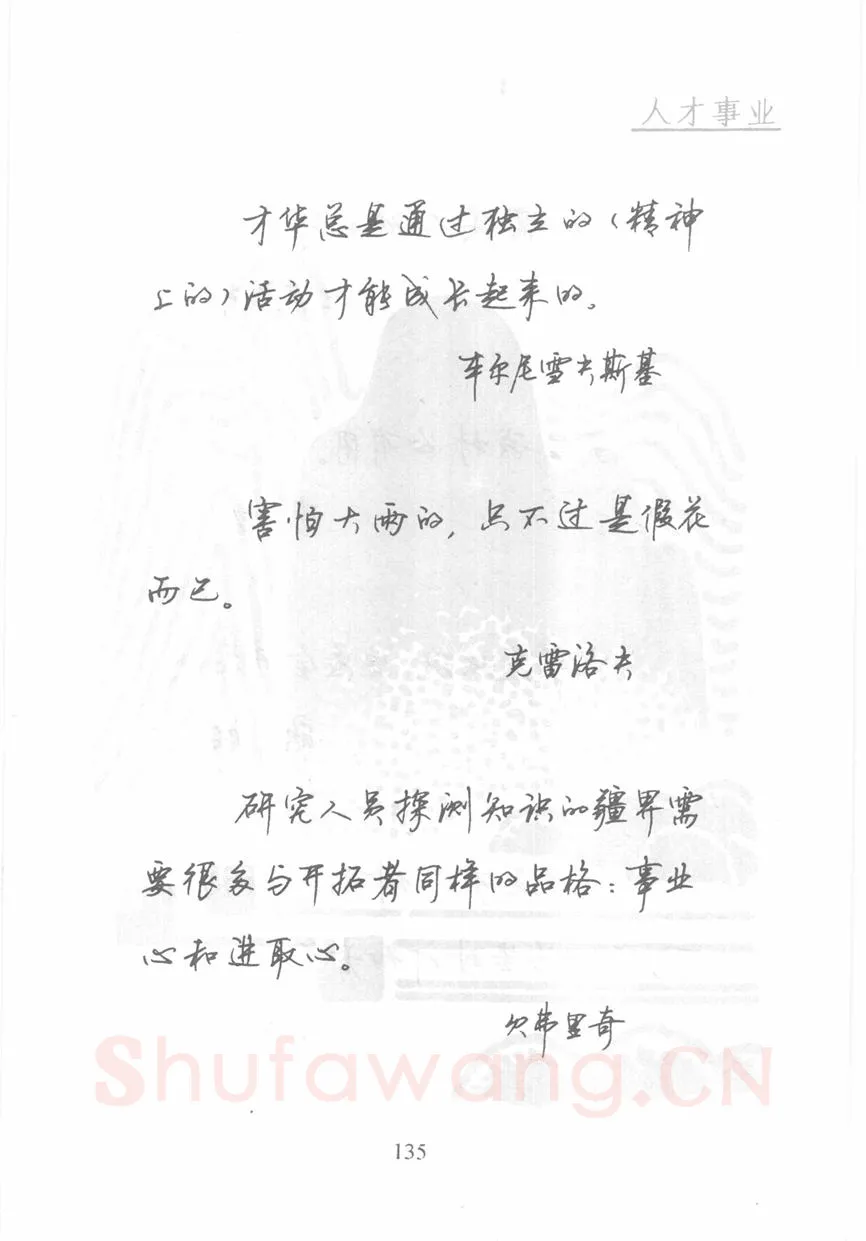 人才事业
才华总是通过独立的（精神
上的）活动才能成长起来的。
车尔尼雪夫斯基
害怕大雨的，只不过是假花
而已。
克雷洛夫
研究人员探测知识的疆界需
要很多与开拓者同样的品格：事业
心和进取心。
弗里奇
Shufawang.CN
135